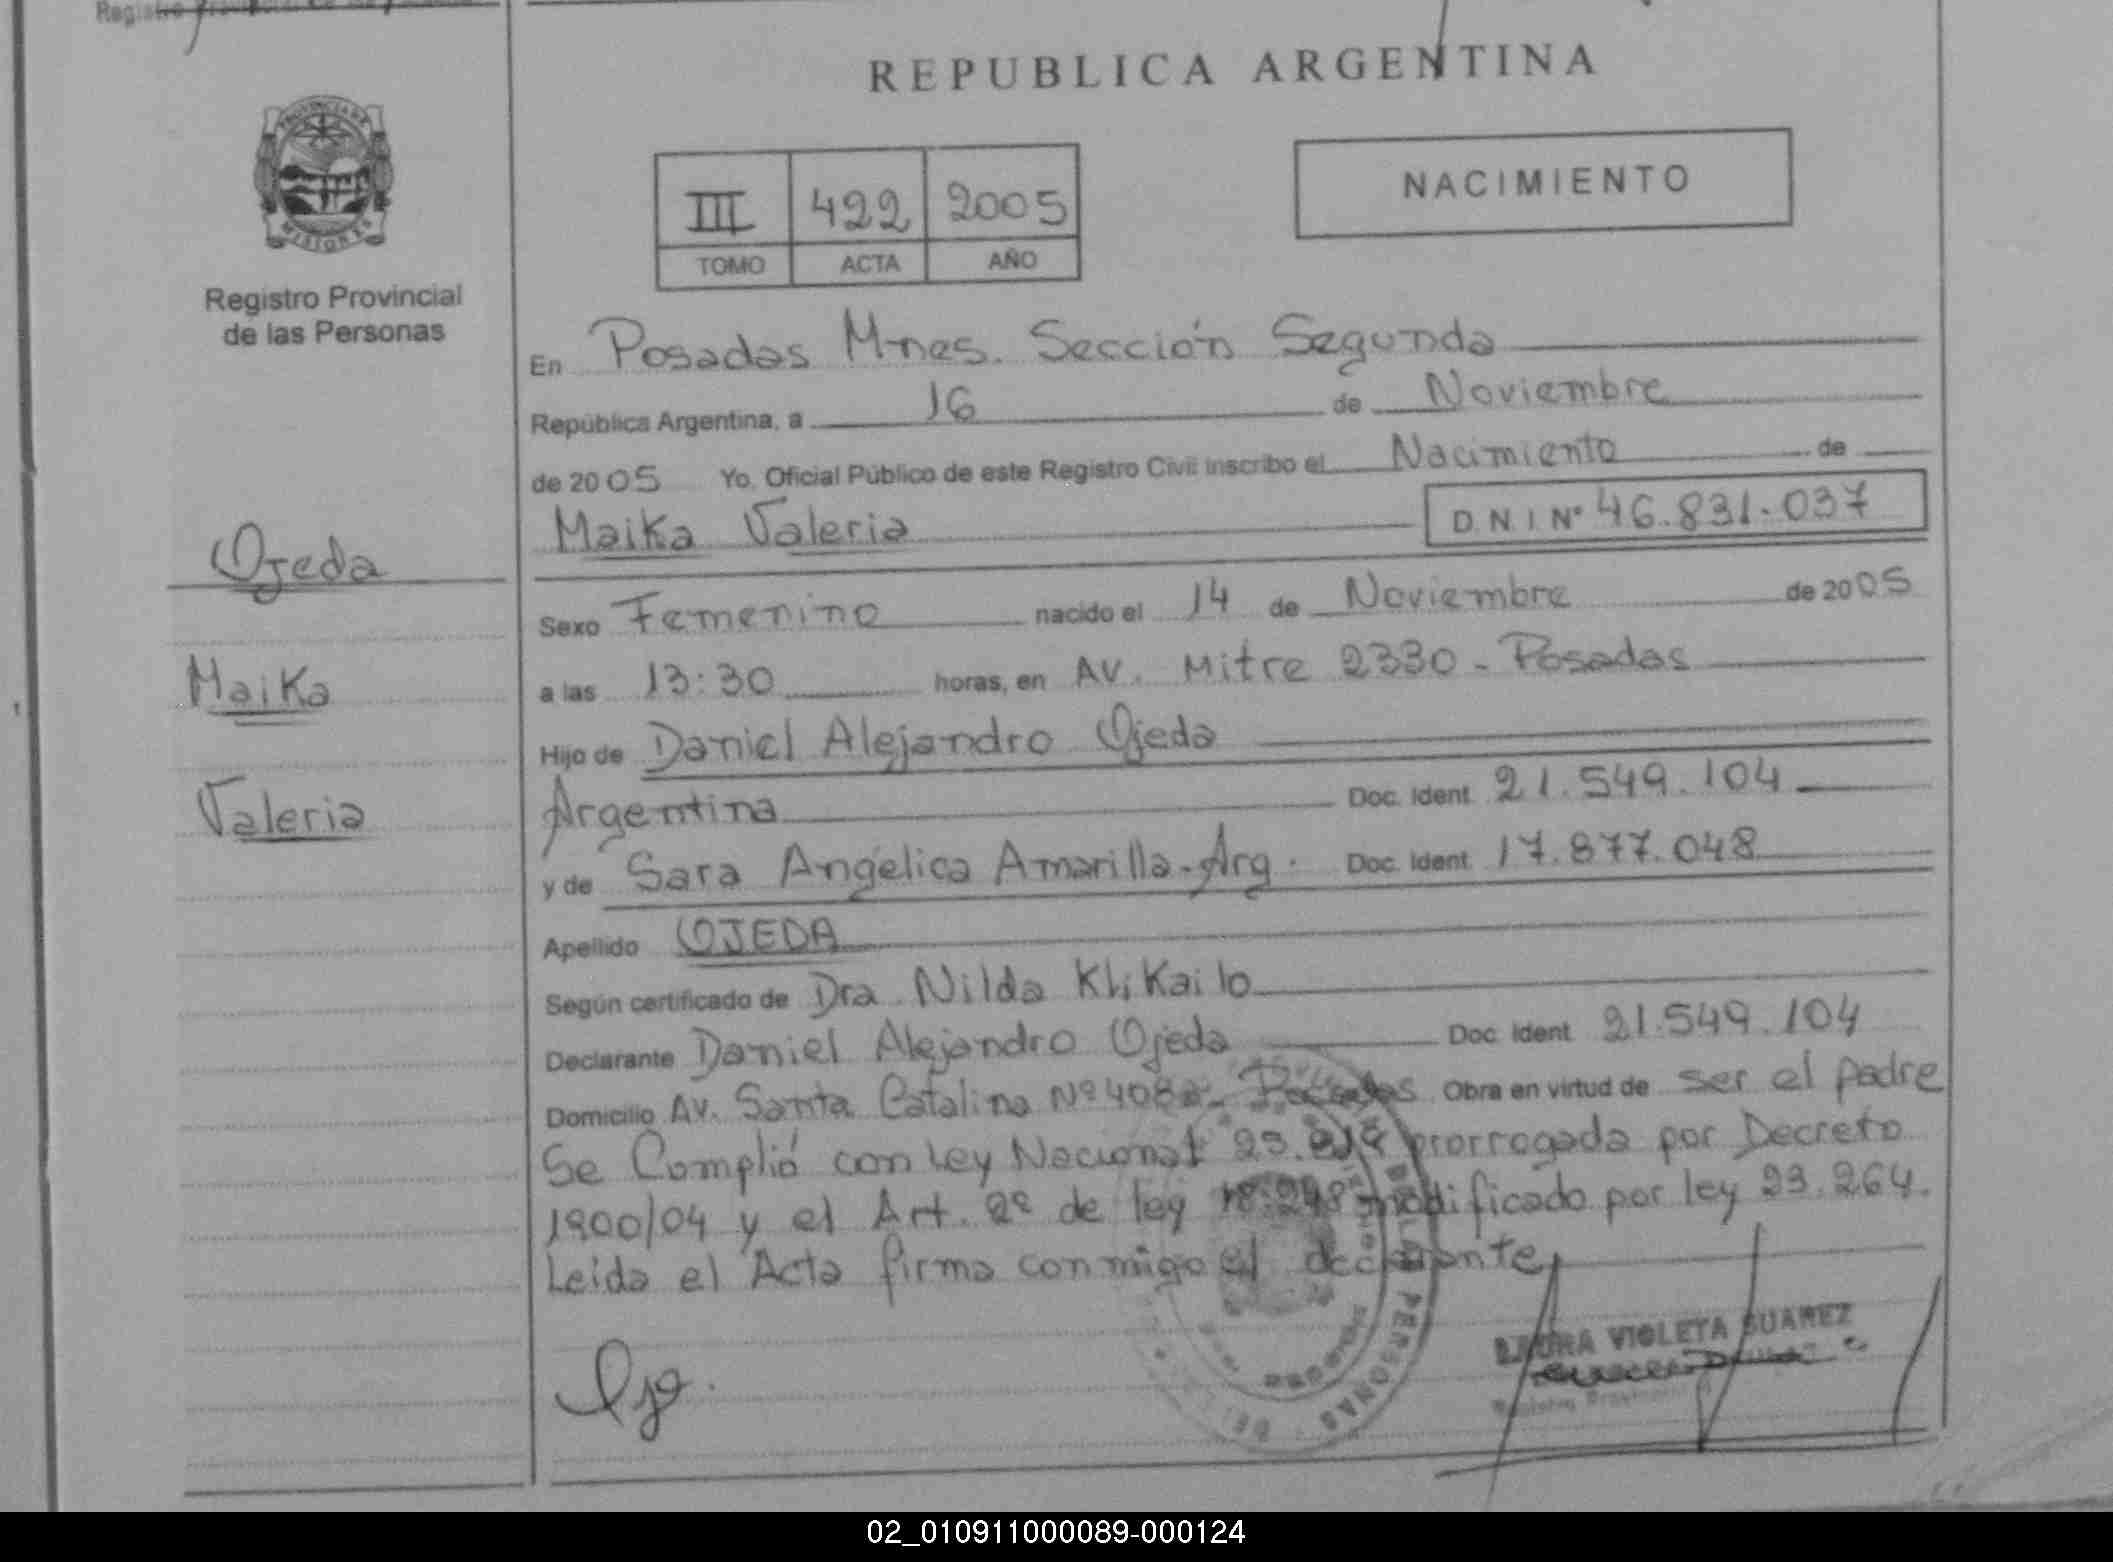 Registro Provincial de las Personas
REPUBLICA ARGENTINA
PROVINCIA DE
MISIONES
Registro Provincial
de las Personas
III 422 2005
TOMO ACTA AÑO
NACIMIENTO
En Posadas Mnes. Sección Segunda
República Argentina, a 16 de Noviembre
de 2005 Yo, Oficial Público de este Registro Civil inscribo el Nacimiento de
Maika Valeria D.N.I Nº 46.831.037
Ojeda
Maika
Valeria
Sexo Femenino nacido el 14 de Noviembre de 2005
a las 13:30 horas, en AV. Mitre 2330 - Posadas
Hijo de Daniel Alejandro Ojeda
Argentina Doc. Ident. 21.549.104
y de Sara Angélica Amarilla - Arg. Doc. Ident. 17.877.048
Apellido OJEDA
Según certificado de Dra. Nilda KliKailo
Declarante Daniel Alejandro Ojeda Doc. Ident. 21.549.104
Domicilio AV. Santa Catalina Nº Posadas Obra en virtud de ser el padre
Se Complió con Ley Nacional prorrogada por Decreto
1900/04 y el Art. 2º de ley 18.248 modificado por ley 23.264.
Leida el Acta firma conmigo el declarante
PERSONAS
LAURA VIOLETA SUAREZ
02_010911000089-000124